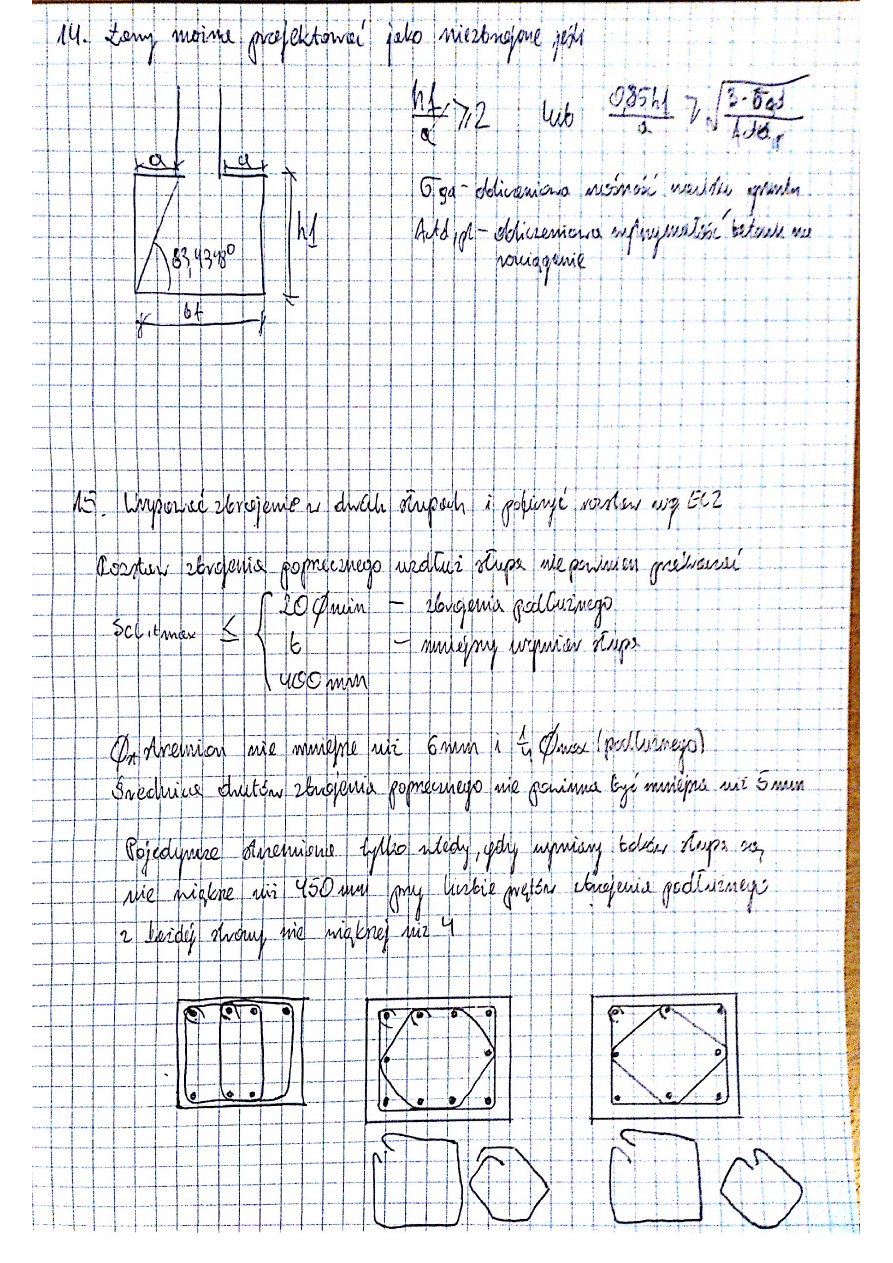 14. Ławy można projektować jako niezbrojone jeśli
h1/a ⩾ 2 lub 0,85h1/a ⩾ √(3·σgd/fctd,pl)
a a
σgd – obliczeniowa nośność gruntu
h1
fctd,pl – obliczeniowa wytrzymałość betonu na
rozciąganie
63,4348°
bf
15. zbrojenie w dwóch słupach i rozstaw wg EC2
Rozstaw zbrojenia poprzecznego wzdłuż słupa nie powinien przekraczać
Scl,tmax ≤ { 20 Ømin – zbrojenia podłużnego
b – mniejszy wymiar słupa
400 mm
Ø strzemion nie mniejsze niż 6mm i 1/4 Ømax (podłużnego)
Średnica drutów zbrojenia poprzecznego nie powinna być mniejsza niż 5mm
Pojedyncze strzemiona tylko wtedy, gdy wymiary boków słupa są
nie większe niż 450 mm przy liczbie prętów zbrojenia podłużnego
z każdej strony nie większej niż 4